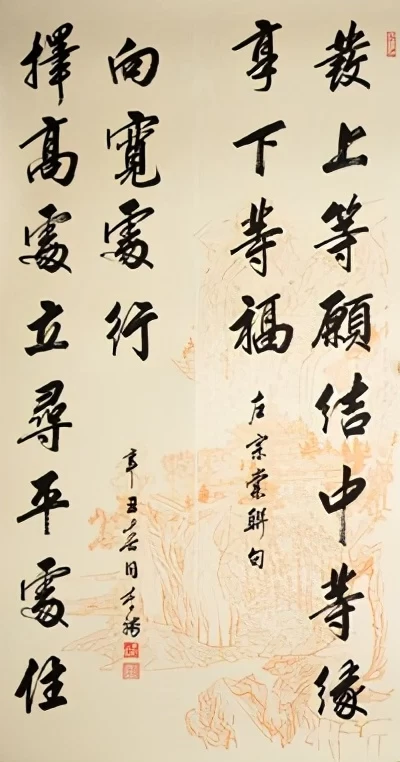 發上等願結中等緣
享下等福
左宗棠聯句
擇髙處立尋平處住
向寬處行
辛丑春日